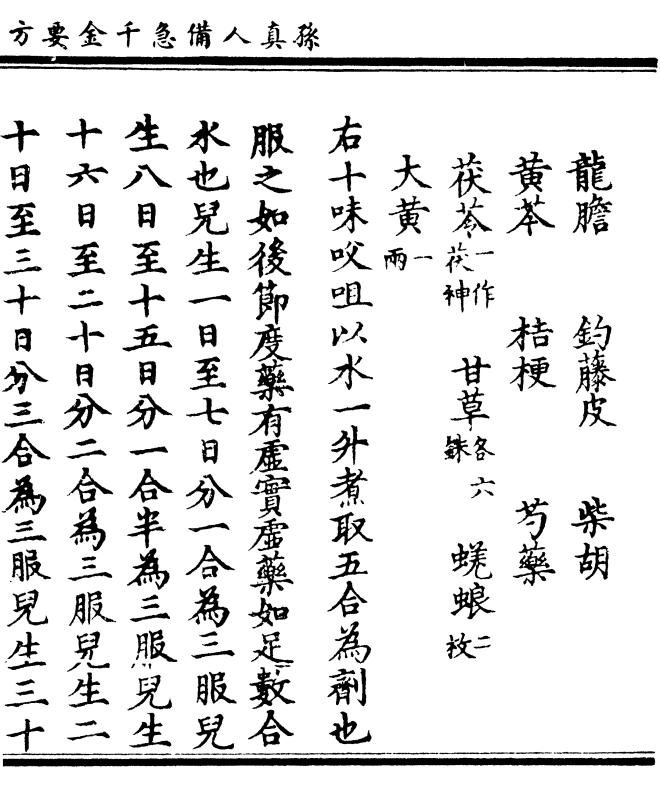 孫真人備急千金要方
龍膽 釣藤皮 柴胡
黃芩 桔梗 芍藥
茯苓一作茯神 甘草各六銖 蜣蜋二枚
大黃一兩
右十味㕮咀以水一升煮取五合為劑也
服之如後節度藥有虛實虛藥如足數合
水也兒生一日至七日分一合為三服兒
生八日至十五日分一合半為三服兒生
十六日至二十日分二合為三服兒生二
十日至三十日分三合為三服兒生三十